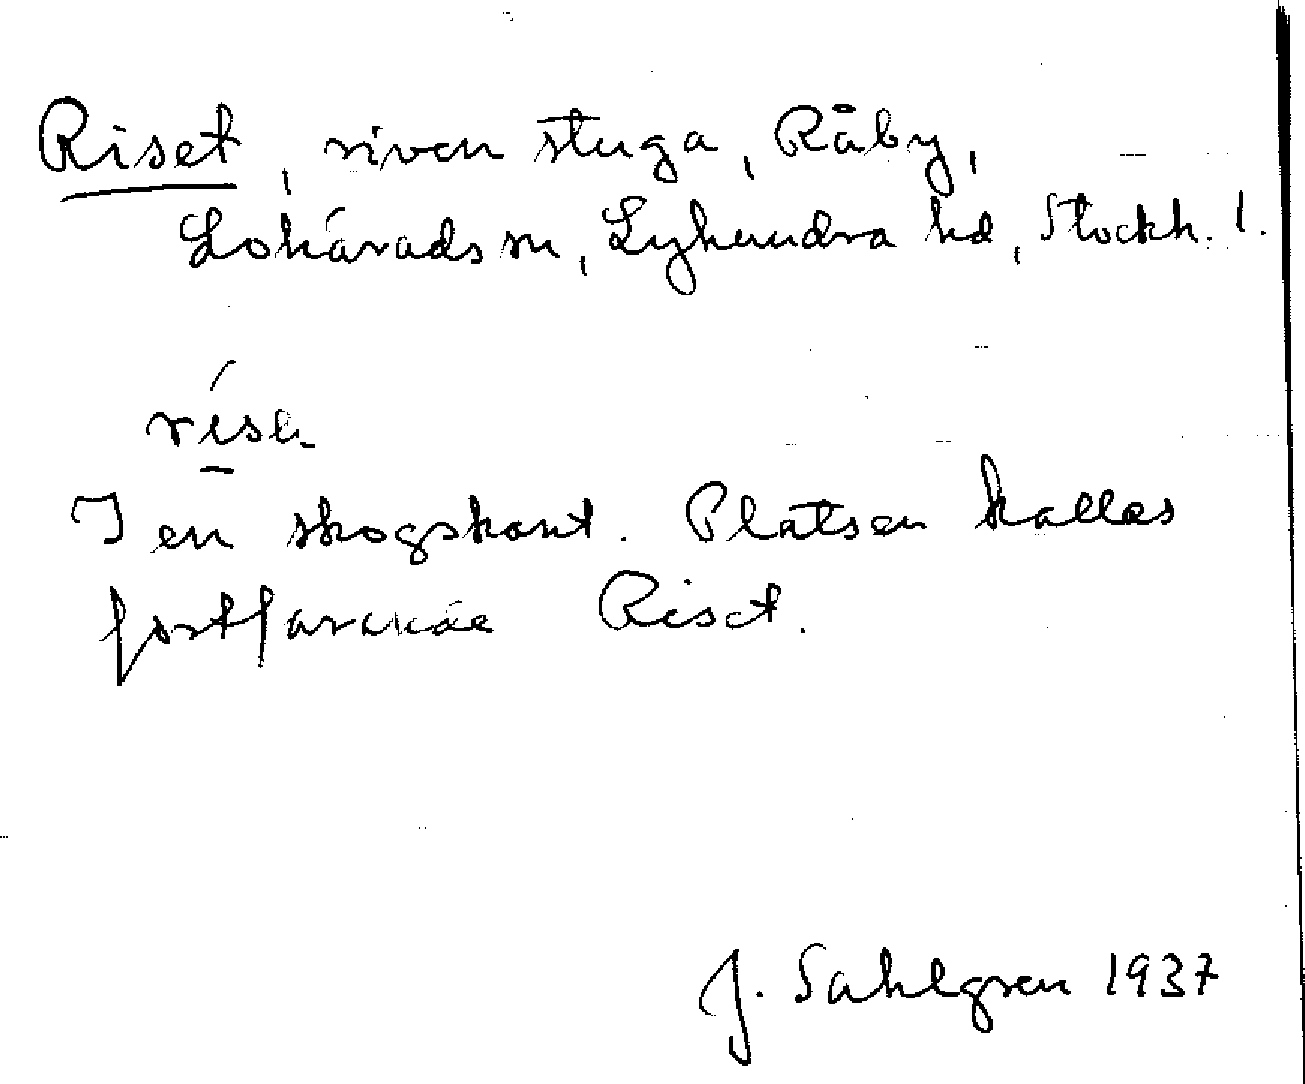 Riset, riven stuga, Råby,
Lohärads sn, Lyhundra hd, Stockh. l.
I en skogskant. Platsen kallas
fortfarande Riset.
J. Sahlgren 1937